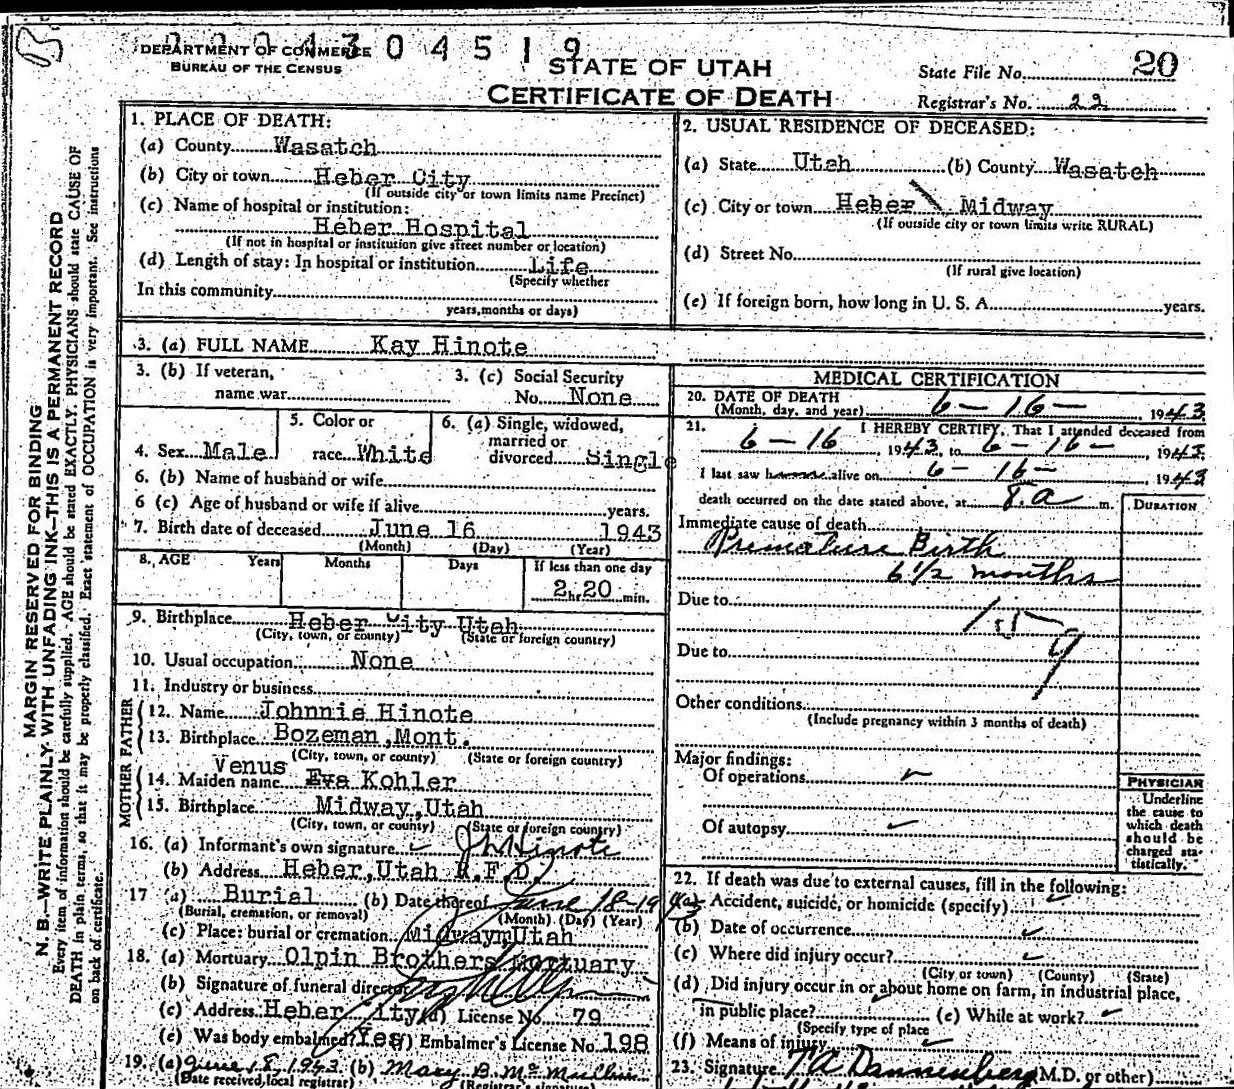 2 2 0 4 3 0 4 5 1 9
DEPARTMENT OF COMMERCE
BUREAU OF THE CENSUS
STATE OF UTAH
CERTIFICATE OF DEATH
State File No. 20
Registrar's No. 22
MARGIN RESERVED FOR BINDING
N. B.—WRITE PLAINLY WITH UNFADING INK—THIS IS A PERMANENT RECORD
Every item of information should be carefully supplied. AGE should be stated EXACTLY. PHYSICIANS should state CAUSE OF
DEATH in plain terms, so that it may be properly classified. Exact statement of OCCUPATION is very important. See instructions
on back of certificate.
1. PLACE OF DEATH:
(a) County Wasatch
(b) City or town Heber City
(If outside city or town limits name Precinct)
(c) Name of hospital or institution:
Heber Hospital
(If not in hospital or institution give street number or location)
(d) Length of stay: In hospital or institution Life
(Specify whether
In this community
years, months or days)
2. USUAL RESIDENCE OF DECEASED:
(a) State Utah (b) County Wasatch
(c) City or town Heber \ Midway
(If outside city or town limits write RURAL)
(d) Street No.
(If rural give location)
(e) If foreign born, how long in U. S. A. years.
3. (a) FULL NAME Kay Hinote
3. (b) If veteran,
name war
3. (c) Social Security
No. None
4. Sex Male
5. Color or
race White
6. (a) Single, widowed,
married or
divorced Single
6. (b) Name of husband or wife
6 (c) Age of husband or wife if alive years.
7. Birth date of deceased June 16 1943
(Month) (Day) (Year)
8. AGE Years Months Days If less than one day
2 hr 20 min.
9. Birthplace Heber City Utah
(City, town, or county) (State or foreign country)
10. Usual occupation None
11. Industry or business
FATHER
12. Name Johnnie Hinote
13. Birthplace Bozeman, Mont.
(City, town, or county) (State or foreign country)
MOTHER
Venus
14. Maiden name Eva Kohler
15. Birthplace Midway, Utah
(City, town, or county) (State or foreign country)
16. (a) Informant's own signature Hinote
(b) Address Heber, Utah R.F.D.
17 (a) Burial (b) Date thereof June 18-1943
(Burial, cremation, or removal) (Month) (Day) (Year)
(c) Place: burial or cremation Midwaym Utah
18. (a) Mortuary Olpin Brothers Mortuary
(b) Signature of funeral director
(c) Address Heber City (d) License No. 79
(e) Was body embalmed? Yes (f) Embalmer's License No. 198
19. (a) June 18, 1943 (b) Mary B. McMullin
(Date received local registrar) (Registrar's signature)
MEDICAL CERTIFICATION
20. DATE OF DEATH
(Month, day, and year) 6-16- , 1943
21. I HEREBY CERTIFY, That I attended deceased from
6-16 , 1943, to 6-16- , 1943.
I last saw h alive on 6-16- 1943
death occurred on the date stated above, at 8.a m.
DURATION
Immediate cause of death
Premature Birth
6 1/2 months
Due to 159
Due to
Other conditions
(Include pregnancy within 3 months of death)
Major findings:
Of operations
Of autopsy
PHYSICIAN
Underline
the cause to
which death
should be
charged sta-
tistically.
22. If death was due to external causes, fill in the following:
(a) Accident, suicide, or homicide (specify)
(b) Date of occurrence
(c) Where did injury occur?
(City or town) (County) (State)
(d) Did injury occur in or about home on farm, in industrial place,
in public place? (e) While at work?
(Specify type of place
(f) Means of injury
23. Signature T A Dannenberg (M.D. or other)